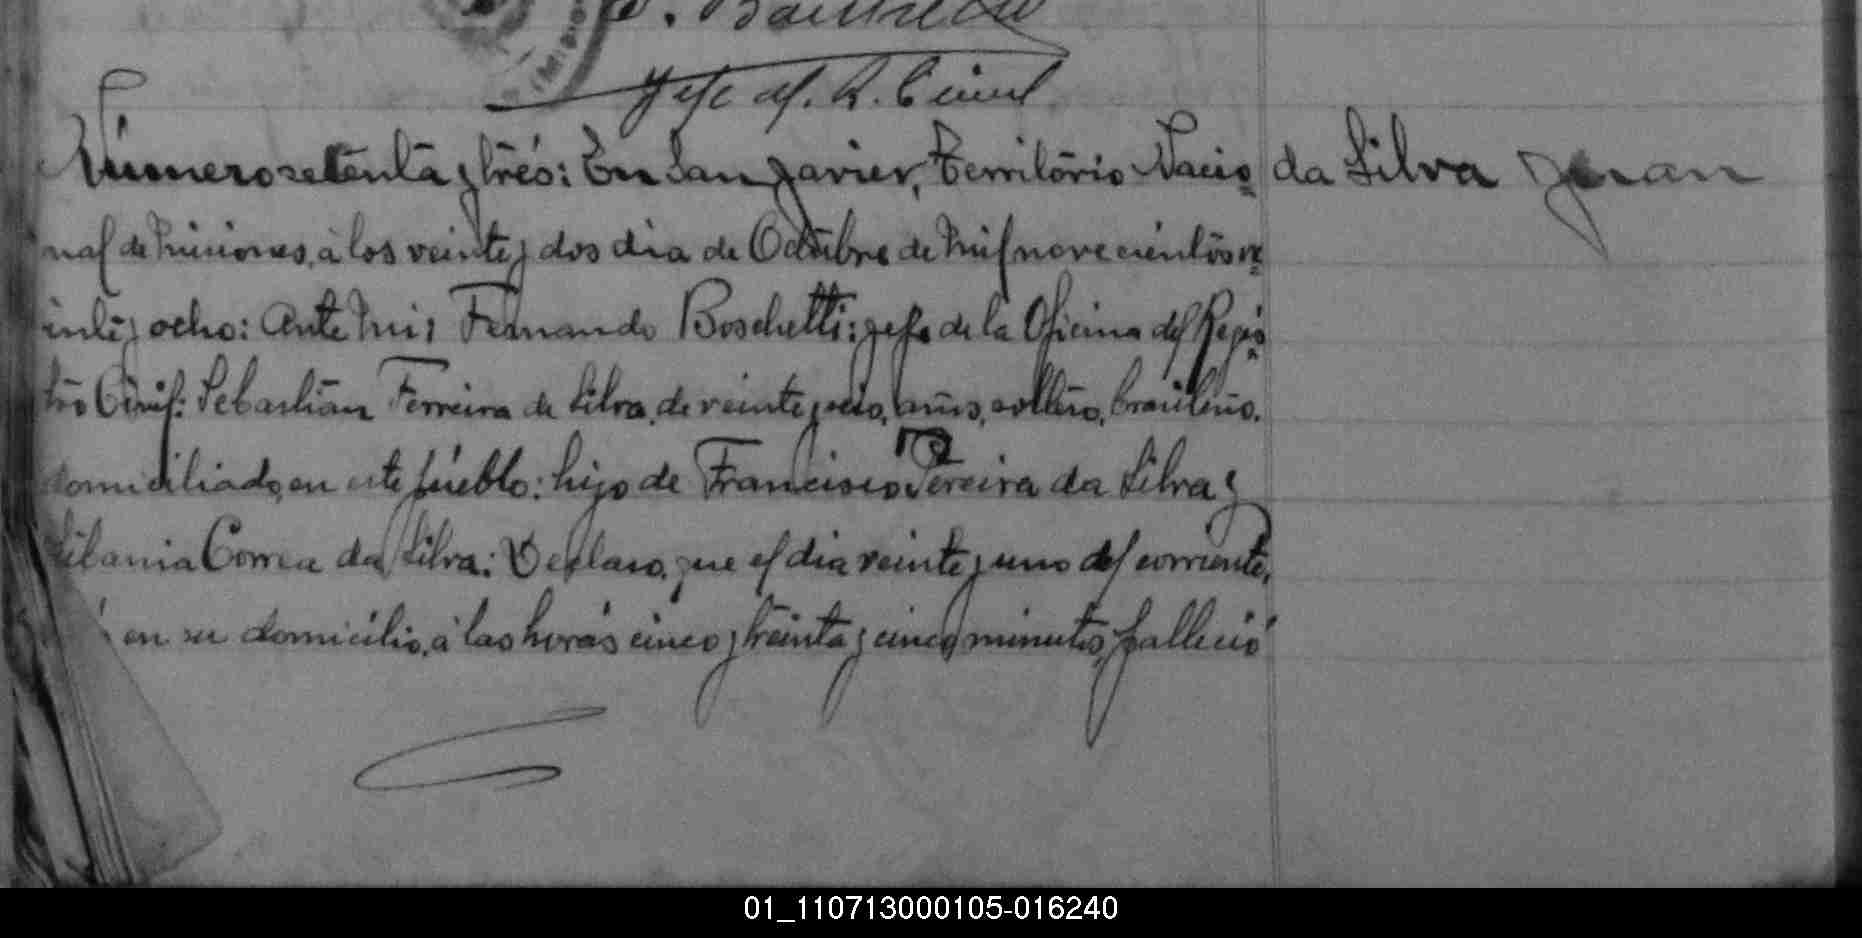 Jefe del R. Civil
Número setenta y trés: En San Javier, Território Nacio
da Silva Juan
nal de Misiones, à los veinte y dos dia de Octubre de Mil novecientos ve
inte y ocho: Ante Mi; Fernando Boschetti: jefe de la Oficina del Regis
tro Civil: Sebastián Ferreira de Silva, de veinte y seis, años, soltero, brasileño,
domiciliado, en este pueblo: hijo de Francisco Pereira da Silva y
Correa da Silva: Declaro, que el dia veinte y uno del corriente,
en su domicilio, à las horas cinco y treinta y cinco minutos, falleció
01_110713000105-016240